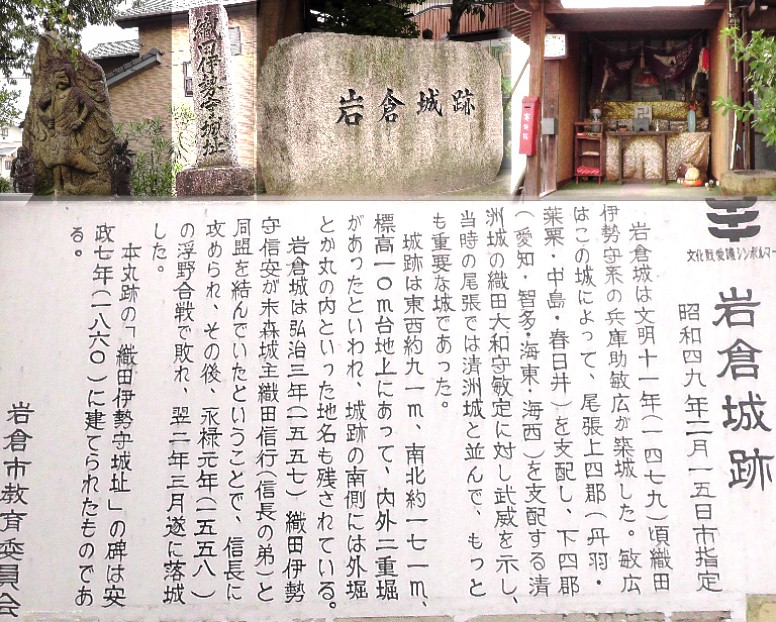 織田伊勢守城址
岩倉城跡
文化財愛護シンボルマー
岩倉城跡
昭和四九年二月一五日市指定
岩倉城は文明十一年(一四七九)頃織田
伊勢守系の兵庫助敏広が築城した。敏広
はこの城によって、尾張上四郡(丹羽・
葉栗・中島・春日井)を支配し、下四郡
(愛知・智多・海東・海西)を支配する清
洲城の織田大和守敏定に対し武威を示し、
当時の尾張では清洲城と並んで、もっと
も重要な城であった。
城跡は東西約九一m、南北約一七一m、
標高一〇m台地上にあって、内外二重堀
があったといわれ、城跡の南側には外堀
とか丸の内といった地名も残されている。
岩倉城は弘治三年(一五五七)織田伊勢
守信安が末森城主織田信行(信長の弟)と
同盟を結んでいたということで、信長に
攻められ、その後、永禄元年(一五五八)
の浮野合戦で敗れ、翌二年三月遂に落城
した。
本丸跡の「織田伊勢守城址」の碑は安
政七年(一八六〇)に建てられたものであ
る。
岩倉市教育委員会